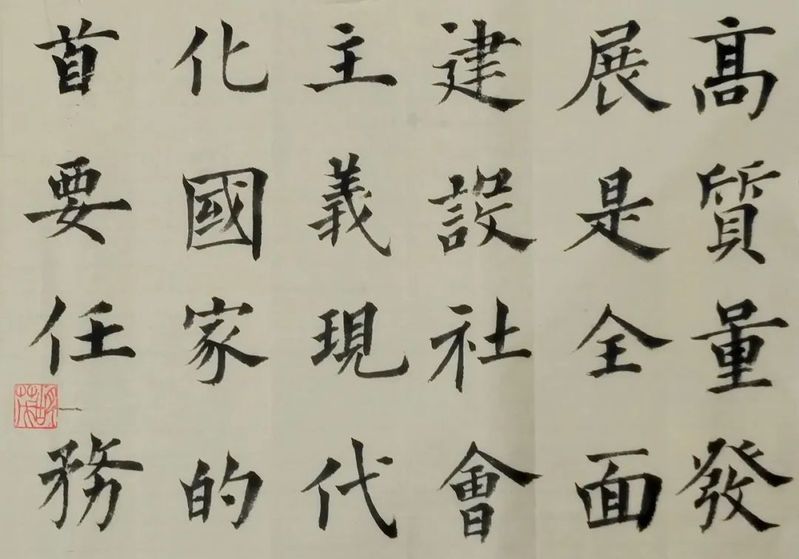 高質量發
展是全面
建設社會
主義現代
化國家的
首要任務